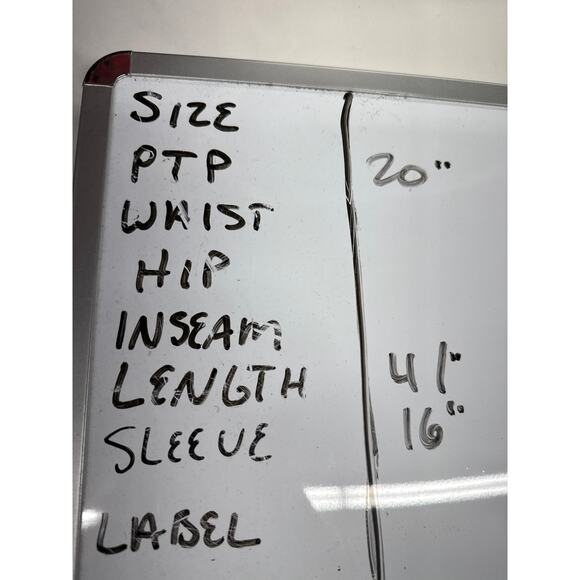 SIZE
PTP 20"
WAIST
HIP
INSEAM
LENGTH 41"
SLEEVE 16"
LABEL